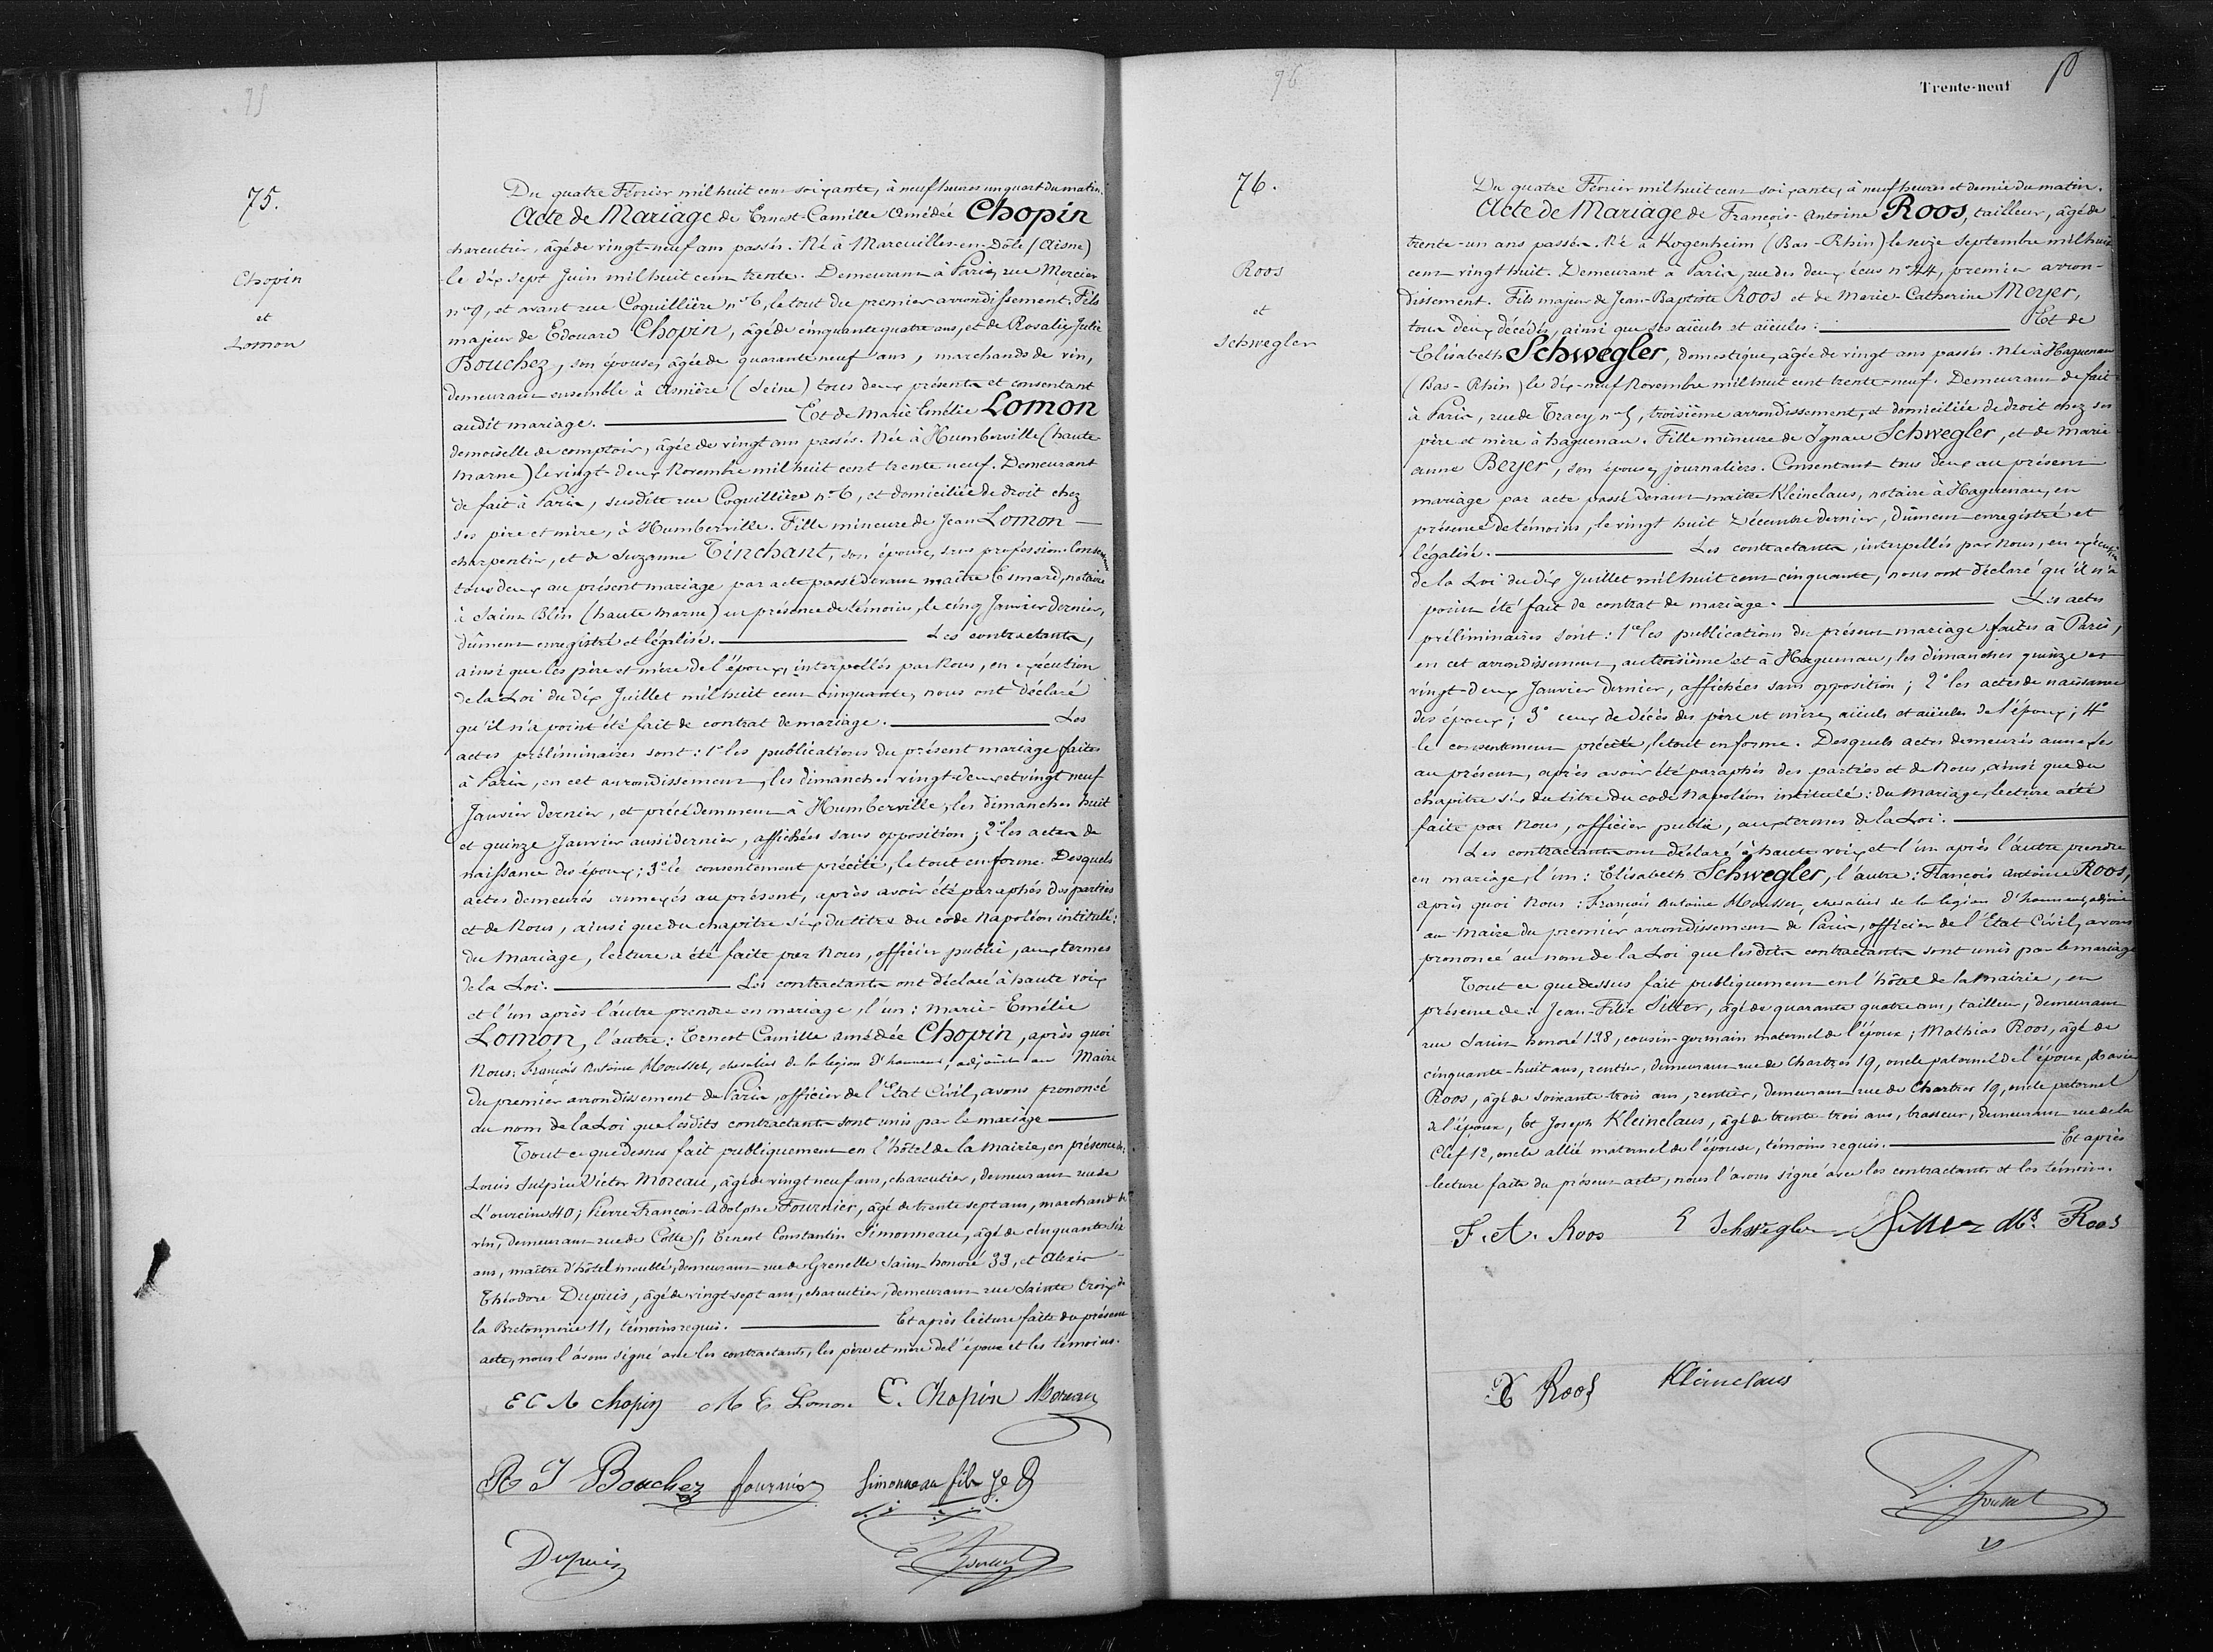 75
75.
Chopin
et
Lomon
Du quatre Février mil huit cent soixante, à neuf heures un quart du matin.
Acte de Mariage de Ernest-Camille Amédée Chopin
charcutier, âgé de vingt-neuf ans passés. Né à Mareuilles-en-Dôle (Aisne)
le dix sept Juin mil huit cent trente. Demeurant à Paris, rue Mercier
n° 9, et avant rue Coquillière n° 6, le tout du premier arrondissement. Fils
majeur de Edouard Chopin, âgé de cinquante quatre ans, et de Rosalie Julie
Bouchez, son épouse, âgée de quarante neuf ans, marchands de vin,
demeurant ensemble à Asnière (Seine) tous deux présents et consentant
audit mariage. Et de Marie Emélie Lomon
demoiselle de comptoir, âgée de vingt ans passés. Née à Humberville (haute
Marne) le vingt-deux Novembre mil huit cent trente neuf. Demeurant
de fait à Paris, susdite rue Coquillière n° 6, et domiciliée de droit chez
ses père et mère, à Humberville. Fille mineure de Jean Lomon
charpentier, et de Suzanne Tinchant, son épouse, sans profession. Consentant
tous deux au présent mariage par acte passé devant maître Esmard, notaire
à Saint Blin (haute Marne) en présence de témoins, le cinq Janvier dernier,
dûment enregistré et légalisé. Les contractants,
ainsi que les père et mère de l'époux, interpellés par Nous, en exécution
de la Loi du dix Juillet mil huit cent cinquante, nous ont déclaré
qu'il n'a point été fait de contrat de mariage. Les
actes préliminaires sont : 1° les publications du présent mariage faites
à Paris, en cet arrondissement, les dimanches vingt-deux et vingt neuf
Janvier dernier, et précédemment à Humberville, les dimanches huit
et quinze Janvier aussi dernier, affichées sans opposition ; 2° les actes de
naissance des époux ; 3° le consentement précité, le tout en forme. Desquels
actes demeurés annexés au présent, après avoir été paraphés des parties
et de Nous, ainsi que du chapitre six du titre du code Napoléon intitulé :
du Mariage, lecture a été faite par Nous, officier public, aux termes
de la Loi. Les contractants ont déclaré à haute voix
et l'un après l'autre prendre en mariage, l'un : Marie-Emélie
Lomon, l'autre : Ernest Camille Amédée Chopin, après quoi
Nous : François Antoine Mousset, chevalier de la légion d'honneur, adjoint au Maire
du premier arrondissement de Paris, officier de l'Etat Civil, avons prononcé
au nom de la Loi que lesdits contractants sont unis par le mariage
Tout ce que dessus fait publiquement en l'hôtel de la Mairie, en présence de :
Louis Victor Moreau, âgé de vingt neuf ans, charcutier, demeurant rue de
L'ourcine 40 ; Pierre-François-Adolphe Fournier, âgé de trente sept ans, marchand de
vin, demeurant rue de Cotte 5, Ernest Constantin Simonneau, âgé de cinquante six
ans, maître d'hôtel meublé, demeurant rue de Grenelle Saint honoré 33, et Alexis
Théodore Dupuis, âgé de vingt-sept ans, charcutier, demeurant rue Sainte Croix de
la Bretonnerie 11, témoins requis. Et après lecture faite du présent
acte, nous l'avons signé avec les contractants, les père et mère de l'époux et les témoins.
E C A Chopin M E Lomon E. Chopin Moreau
R J Bouchez fournier Simonneau fils
Dupuis
76
Trente-neuf
76.
Roos
et
Schwegler
Du quatre Février mil huit cent soixante, à neuf heures et demie du matin.
Acte de Mariage de François-Antoine Roos, tailleur, âgé de
trente-un ans passés. Né à Kogenheim (Bas-Rhin) le seize Septembre mil huit
cent vingt huit. Demeurant à Paris, rue des deux écus n° 44, premier arron-
dissement. Fils majeur de Jean-Baptiste Roos et de Marie-Catherine Meyer,
tous deux décédés, ainsi que ses aïeuls et aïeules : Et de
Elisabeth Schwegler, domestique, âgée de vingt ans passés. Née à Haguenau
(Bas-Rhin) le dix-neuf Novembre mil huit cent trente-neuf. Demeurant de fait
à Paris, rue de Tracy n° 5, troisième arrondissement, et domiciliée de droit chez ses
père et mère à haguenau. Fille mineure de Ignace Schwegler, et de Marie
anne Beyer, son épouse, journaliers. Consentant tous deux au présent
mariage par acte passé devant maître Kleinclaus, notaire à Haguenau, en
présence de témoins, le vingt huit Décembre dernier, dûment enregistré et
légalisé. Les contractants, interpellés par Nous, en exécution
de la Loi du dix Juillet mil huit cent cinquante, nous ont déclaré qu'il n'a
point été fait de contrat de mariage. Les actes
préliminaires sont : 1° les publications du présent mariage faites à Paris,
en cet arrondissement, au troisième et à Haguenau, les dimanches quinze et
vingt-deux Janvier dernier, affichées sans opposition ; 2° les actes de naissance
des époux ; 3° ceux de décès des père et mère, aïeuls et aïeules de l'époux ; 4°
le consentement précité, le tout en forme. Desquels actes demeurés annexés
au présent, après avoir été paraphés des parties et de Nous, ainsi que du
chapitre six du titre du code Napoléon intitulé : du Mariage, lecture a été
faite par Nous, officier public, aux termes de la Loi.
Les contractants ont déclaré à haute voix et l'un après l'autre prendre
en mariage, l'un : Elisabeth Schwegler, l'autre : François Antoine Roos,
après quoi Nous : François Antoine Mousset, chevalier de la légion d'honneur, adjoint
au Maire du premier arrondissement de Paris, officier de l'Etat Civil, avons
prononcé au nom de la Loi que lesdits contractants sont unis par le mariage
Tout ce que dessus fait publiquement en l'hôtel de la Mairie, en
présence de : Jean-Félix Sitter, âgé de quarante quatre ans, tailleur, demeurant
rue Saint honoré 138, cousin-germain maternel de l'époux ; Mathias Roos, âgé de
cinquante-huit ans, rentier, demeurant rue de Chartres 19, oncle paternel de l'époux, Xavier
Roos, âgé de soixante trois ans, rentier, demeurant rue de Chartres 19, oncle paternel
de l'époux, Et Joseph Kleinclaus, âgé de trente-trois ans, brasseur, demeurant rue de la
Clef 12, oncle allié maternel de l'épouse, témoins requis. Et après
lecture faite du présent acte, nous l'avons signé avec les contractants et les témoins.
F. A. Roos E Schwegler Sitter Ms. Roos
X Roos Kleinclaus